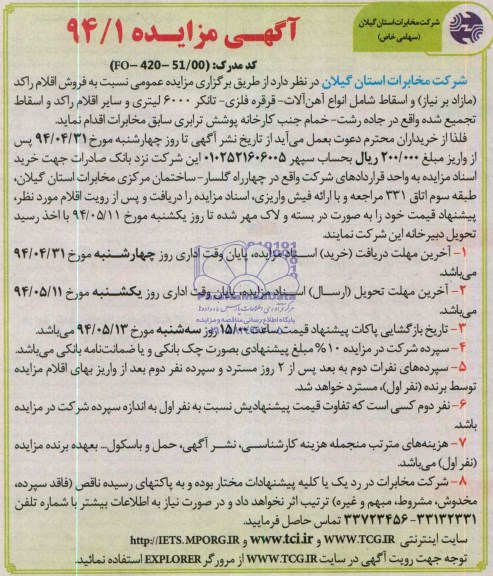 شرکت مخابرات استان گیلان
(سهامی خاص)
آگهـی مزایـده ۹۴/۱
کد مدرک: (FO- 420- 51/00)
شرکت مخابرات استان گیلان در نظر دارد از طریق برگزاری مزایده عمومی نسبت به فروش اقلام راکد
(مازاد بر نیاز) و اسقاط شامل انواع آهن‌آلات- قرقره فلزی- تانکر ۶۰۰۰ لیتری و سایر اقلام راکد و اسقاط
تجمیع شده واقع در جاده رشت- خمام جنب کارخانه پوشش ترابری سابق مخابرات اقدام نماید.
فلذا از خریداران محترم دعوت بعمل می‌آید از تاریخ نشر آگهی تا روز چهارشنبه مورخ ۹۴/۰۴/۳۱ پس
از واریز مبلغ ۲۰۰/۰۰۰ ریال بحساب سپهر ۰۱۰۲۵۲۱۶۰۶۰۰۵ این شرکت نزد بانک صادرات جهت خرید
اسناد مزایده به واحد قراردادهای شرکت واقع در چهارراه گلسار- ساختمان مرکزی مخابرات استان گیلان،
طبقه سوم اتاق ۳۳۱ مراجعه و با ارائه فیش واریزی، اسناد مزایده را دریافت و پس از رویت اقلام مورد نظر،
پیشنهاد قیمت خود را به صورت در بسته و لاک مهر شده تا روز یکشنبه مورخ ۹۴/۰۵/۱۱ با اخذ رسید
تحویل دبیرخانه این شرکت نمایند.
۱- آخرین مهلت دریافت (خرید) اسـناد مزایده، پایان وقت اداری روز چهارشـنبه مورخ ۹۴/۰۴/۳۱
می‌باشد.
۲- آخرین مهلت تحویل (ارسـال) اسـناد مزایده، پایان وقت اداری روز یکشـنبه مورخ ۹۴/۰۵/۱۱
می‌باشد.
۳- تاریخ بازگشایی پاکات پیشنهاد قیمت، ساعت ۱۵/۰۰ روز سه‌شنبه مورخ ۹۴/۰۵/۱۳ می‌باشد.
۴- سپرده شرکت در مزایده ۱۰% مبلغ پیشنهادی بصورت چک بانکی و یا ضمانت‌نامه بانکی می‌باشد.
۵- سپرده‌های نفرات دوم به بعد پس از ۲ روز مسترد و سپرده نفر دوم بعد از واریز بهای اقلام مزایده
توسط برنده (نفر اول)، مسترد خواهد شد.
۶- نفر دوم کسی است که تفاوت قیمت پیشنهادیش نسبت به نفر اول به اندازه سپرده شرکت در مزایده
باشد.
۷- هزینه‌های مترتب منجمله هزینه کارشناسی، نشـر آگهی، حمل و باسکول... بعهده برنده مزایده
(نفر اول) می‌باشد.
۸- شرکت مخابرات در رد یک یا کلیه پیشنهادات مختار بوده و به پاکتهای رسیده ناقص (فاقد سپرده،
مخدوش، مشروط، مبهم و غیره) ترتیب اثر نخواهد داد و در صورت نیاز به اطلاعات بیشتر با شماره تلفن
۳۳۱۳۲۳۳۱- ۳۳۷۲۳۴۵۶ تماس حاصل فرمایید.
سایت اینترنتی WWW.TCG.IR و www.tci.ir و http://IETS.MPORG.IR
توجه جهت رویت آگهی در سایت WWW.TCG.IR از مرورگر EXPLORER استفاده نمائید.